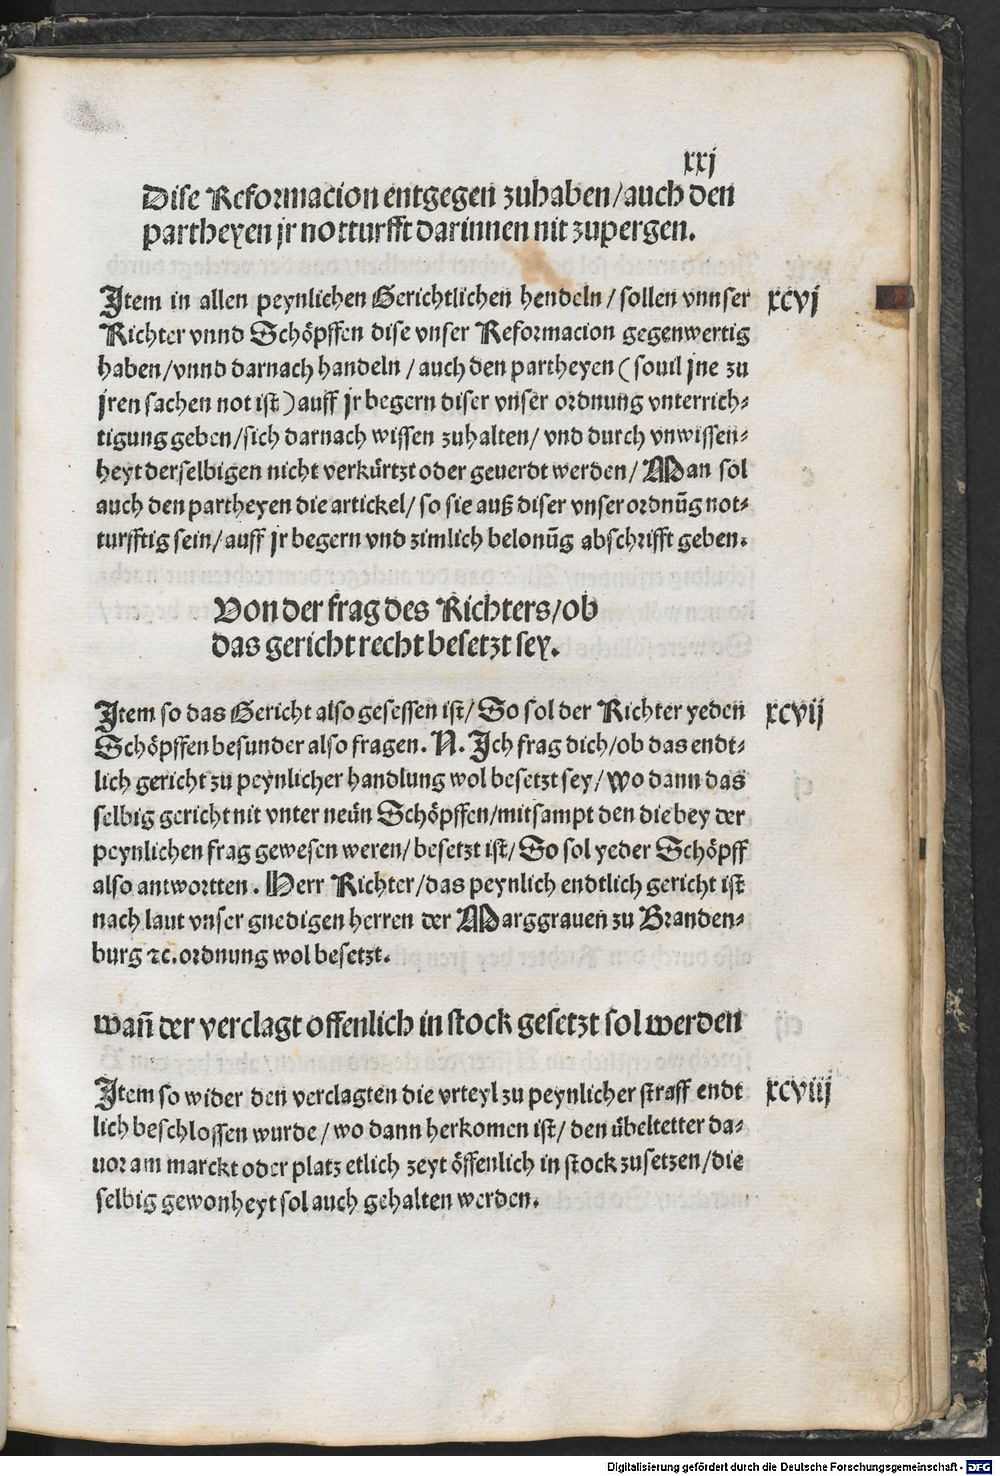 xxj
Dise Reformacion entgegen zuhaben/auch den
partheyen jr notturfft darinnen nit zupergen.
Jtem in allen peynlichen Gerichtlichen hendeln/sollen vnnser xcvj
Richter vnnd Schöpffen dise vnser Reformacion gegenwertig
haben/vnnd darnach handeln/auch den partheyen (souil jne zu
jren sachen not ist) auff jr begern diser vnser ordnung vnterrich-
tigung geben/sich darnach wissen zuhalten/vnd durch vnwissen-
heyt derselbigen nicht verkürtzt oder geuerdt werden/Man sol
auch den partheyen die artickel/so sie auß diser vnser ordnūg not-
turfftig sein/auff jr begern vnd zimlich belonūg abschrifft geben.
Von der frag des Richters/ob
das gericht recht besetzt sey.
Jtem so das Gericht also gesessen ist/So sol der Richter yeden xcvij
Schöpffen besunder also fragen. N. Jch frag dich/ob das endt-
lich gericht zu peynlicher handlung wol besetzt sey/wo dann das
selbig gericht nit vnter neün Schöpffen/mitsampt den die bey der
peynlichen frag gewesen weren/besetzt ist/So sol yeder Schöpff
also antwortten. Herr Richter/das peynlich endtlich gericht ist
nach laut vnser gnedigen herren der Marggrauen zu Branden-
burg ⁊c. ordnung wol besetzt.
wañ der verclagt offenlich in stock gesetzt sol werden
Jtem so wider den verclagten die vrteyl zu peynlicher straff endt xcviij
lich beschlossen wurde/wo dann herkomen ist/den übeltetter da-
uor am marckt oder platz etlich zeyt öffenlich in stock zusetzen/die
selbig gewonheyt sol auch gehalten werden.
Digitalisierung gefördert durch die Deutsche Forschungsgemeinschaft - DFG